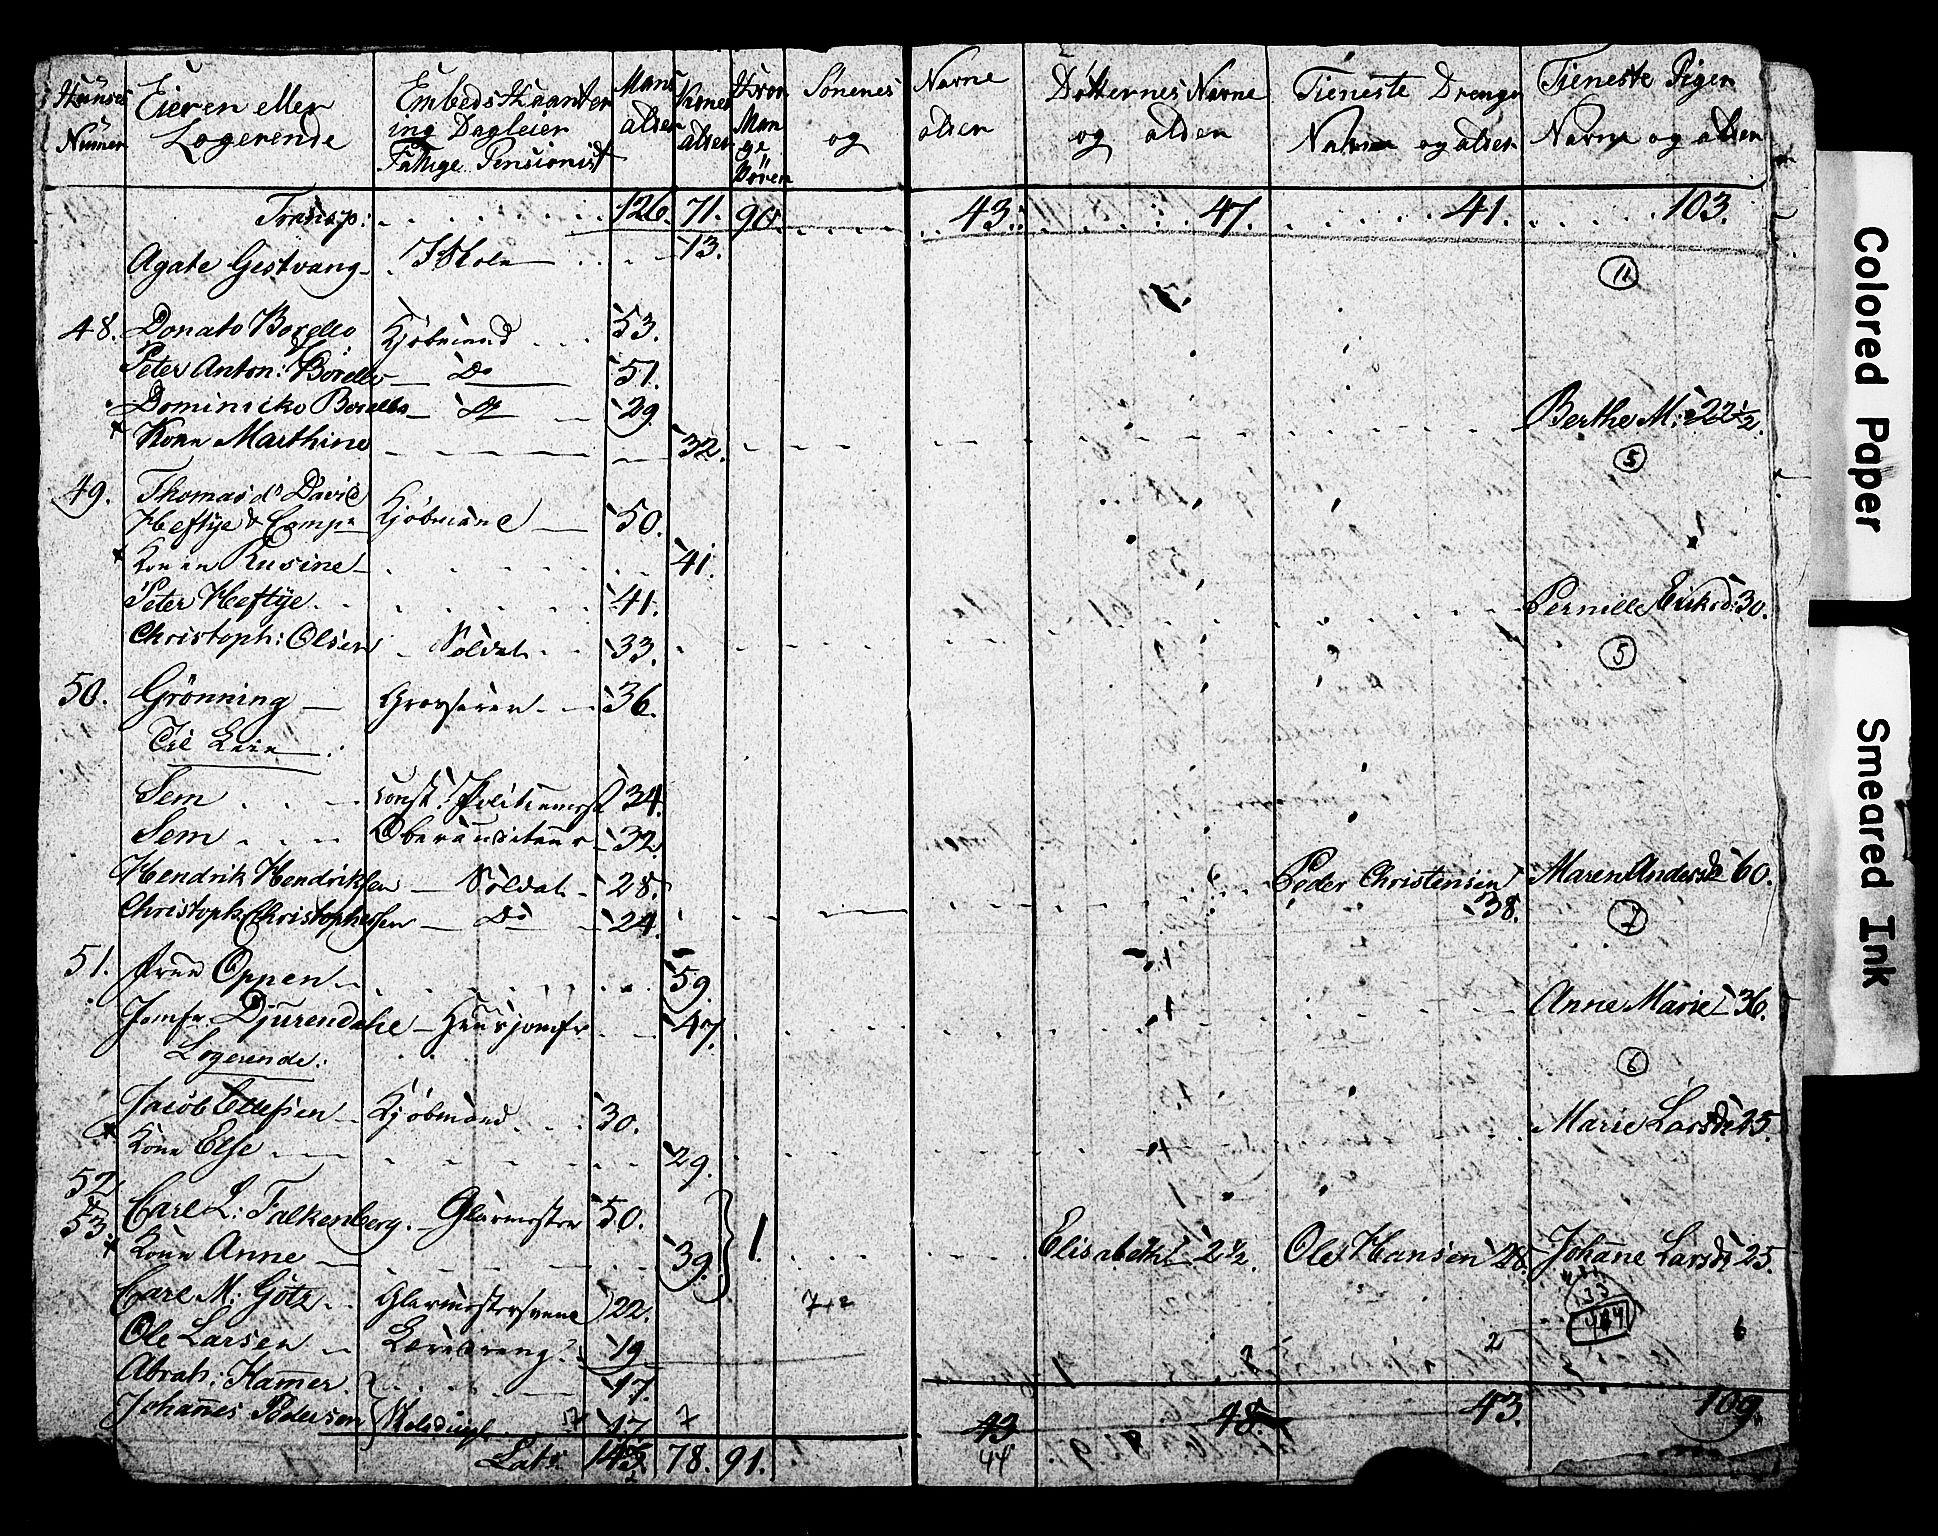 Huuses Numer | Eieren eller Logerende | Embeds Haanter ing Dagleier Fattige Pensionist | Mans alder | Kones alder | Hvor Man ge Børen | Sønenes Navne og alder | Døtternes Navne og alder | Tieneste Drenge Navne og alder | Tieneste Piger Navne og alder
Transp: 126. 71. 90. 43. 47. 41. 103.
Agate Gestvang 13.
11
48. Donato Borello Kjøbmand 53.
Peter Anton: Borello Do 51.
Dominiko Borello Do 29.
Kone Marthine 32. Berthe M: 22½.
5
49. Thomas Joh David
Heftye & Comp: Kjøbmand 50.
Konen Rusine 41.
Peter Heftye 41. Pernille Eriksd: 30.
Christoph: Olsen Soldat 33.
5
50. Grønning 36.
Til Leie
Sem const: Politiemest 34
Sem Oberauditeur 32.
Hendrik Hendriksen Soldat 28. Peder Christensen Maren Andersd 60.
Christoph: Christophersen Do 24. 38.
7
51. Frue Oppen 59.
Jomfr. Djurendahl Huusjomfr 47. Anne Marie 36.
Logerende:
6
Jacob Ellefsen Kjøbmand 30. Marie Larsd 25.
Kone Else 29.
52 &
53. Carl L: Falkenberg. Glarmester 50. 1.
Kone Anne 39. Elisabeth 2½. Ole Hansen 28. Johane Larsd 25.
Carl M: Götz Glarmestersvend 22.
Ole Larsen Læredreng 19
Abrah: Hamer 17. 2 6
Johannes Pederson 17. 7 43 48. 43. 109
Lats. 78. 91. 44
Colored Paper
Smeared Ink